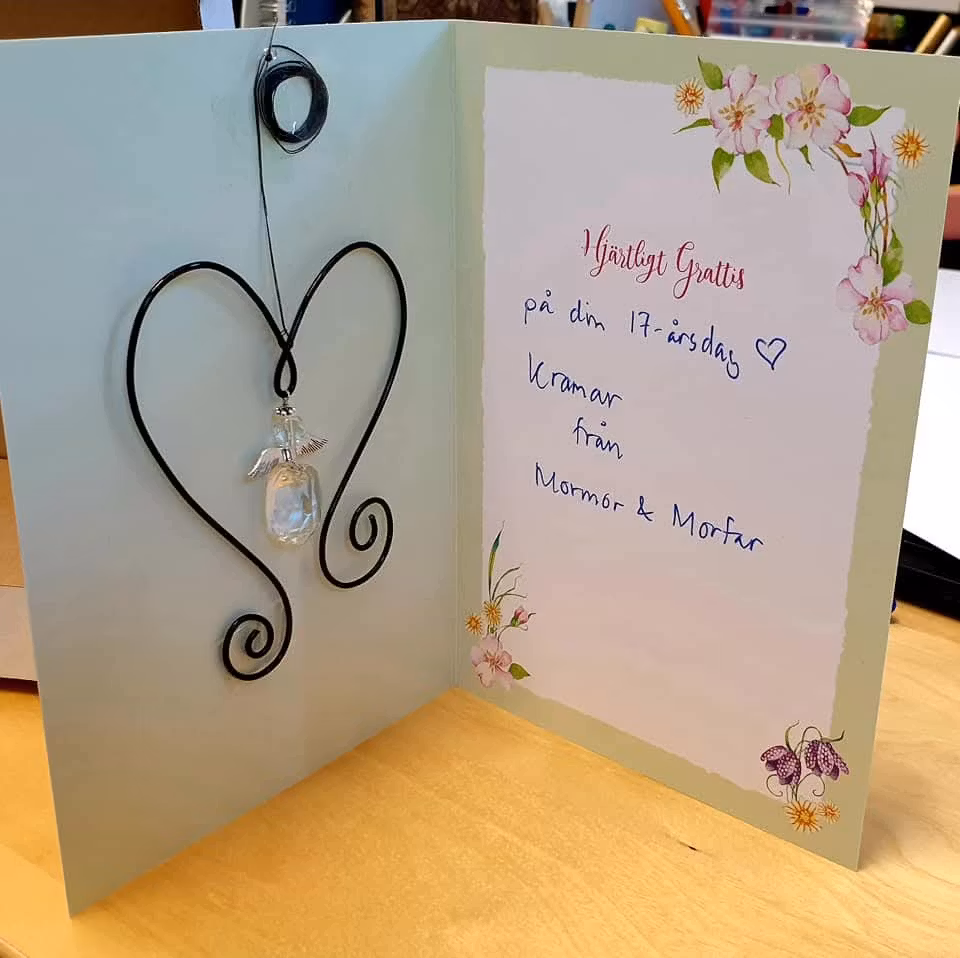 Hjärtligt Grattis
på din 17-årsdag ♡
Kramar
från
Mormor & Morfar